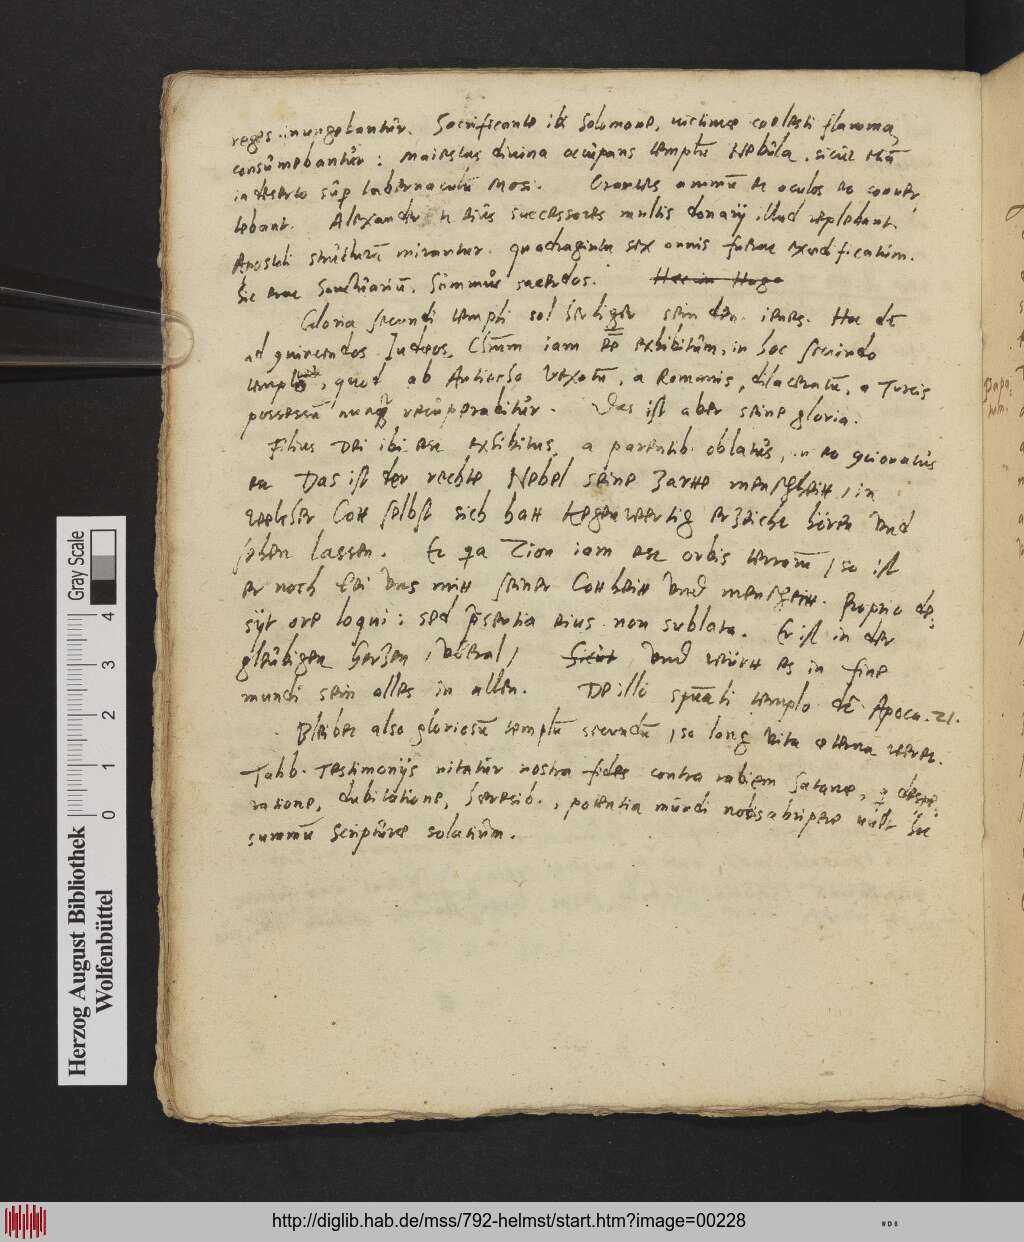 reges inungebantur. Sacrificante ibi Solomone, victimae coelesti flamma
consumebantur: maiestas divina occupans templū Nebula, sicut etiā
in deserto sup tabernaculū Mosi. Orantes animū et oculos eo conver,
tebant. Alexander et eius successores multis donarij illud replebant.
Apostoli structurā mirantur. quadraginta sex annis fuerat exedificatum.
Sic erat Sanctuariū, Summus sacerdos. Hec in Hage
Gloria secundi templi sol herliger sein den ienes. Hoc dē
ad convincendos Iudeos, Chrm̄ iam ēē exhibitum, in hoc secundo
templo, quod ab Antiocho vexatū, a Romanis, dilaceratū, a Turcis
possessū nunq recuperabitur. Das ist aber seine gloria.
Filius Dei ibi est exhibitus, a parentib. oblatus, in eo
est Das ist der rechte Nebel seine zarte menschheitt, in
welcher Gott selbst sich hatt kegenwertig erzeicht hören vnd
sehen lassen. Et qa Zion iam est orbis terrarū, so ist
er noch bei vns mitt seiner Gottheitt vnd menscheitt. Proprio de-
sijt ore loqui: sed p̄sentia eius non sublata. Er ist in der
gleubigen hertzen, vberal, Sicut vnd württ es in fine
mundi sein alles in allen. De illo spūali templo dē Apoca. 21.
Bleibet also gloriosū templū secundū, so lang vita aeterna weret.
Talib. Testimonijs nitatur nostra fides contra rabiem Satanae, q despe-
ratione, dubitatione, heresib., potentia mundi nobis abripere vult hoc
summū Scripturae solatium.
Papa
Herzog August Bibliothek
Wolfenbüttel
Gray Scale
0 1 2 3 4
http://diglib.hab.de/mss/792-helmst/start.htm?image=00228